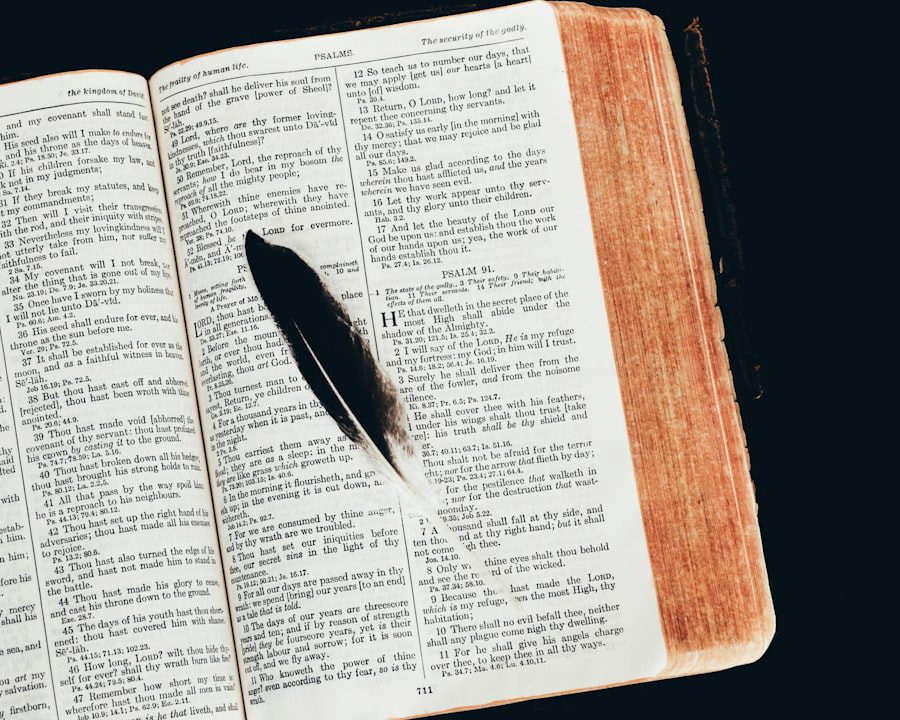 the kingdom of David.
salted
with
estab-
him.
him;
fore his
mercy
shall his
e sea, and
art my
salvation.
firstborn,
and my covenant shall stand fast
him.
His seed also will I make to endure for
and his throne as the days of heaven.
If his children forsake my law, and
not in my judgments;
31 If they break my statutes, and keep
my commandments;
32 Then will I visit their transgression
with the rod, and their iniquity with stripes.
33 Nevertheless my lovingkindness will I
not utterly take from him, nor suffer my
faithfulness to fail.
2 Sa. 7.15.
34 My covenant will I not break, nor
alter the thing that is gone out of my lips.
Nu. 23.19; De. 7.9; Je. 33.20,21.
35 Once have I sworn by my holiness that
I will not lie unto Dā´-vid.
Ps. 60.6; Am. 4.2.
36 His seed shall endure for ever, and his
throne as the sun before me.
Ver. 29; Ps. 72.5.
37 It shall be established for ever as the
moon, and as a faithful witness in heaven.
Sē´-lăh.
Job 16.19; Ps. 72.5.
38 But thou hast cast off and abhorred
[rejected], thou hast been wroth with thine
anointed.
Ps. 20.6; 44.9.
39 Thou hast made void [abhorred] the
covenant of thy servant: thou hast profaned
his crown by casting it to the ground.
Ps. 74.7; 78.59; La. 5.16.
40 Thou hast broken down all his hedges;
thou hast brought his strong holds to ruin.
Ps. 80.12; La. 2.2,5.
41 All that pass by the way spoil him:
he is a reproach to his neighbours.
Ps. 44.13; 79.4; 80.12.
42 Thou hast set up the right hand of his
adversaries; thou hast made all his enemies
to rejoice.
Ps. 13.2; 80.6.
43 Thou hast also turned the edge of his
sword, and hast not made him to stand in
the battle.
44 Thou hast made his glory to cease,
and cast his throne down to the ground.
Eze. 28.7.
45 The days of his youth hast thou short-
ened: thou hast covered him with shame.
Sē´-lăh.
Ps. 44.15; 71.13; 102.23.
46 How long, LORD? wilt thou hide thy-
self for ever? shall thy wrath burn like fire?
Ps. 44.24; 79.5; 80.4.
47 Remember how short my time is:
wherefore hast thou made all men in vain?
Job 10.9; 14.1; Ps. 62.9; Ec. 2.11.
is he that liveth, and shall
The frailty of human life.
PSALMS.
The security of the godly.
not see death? shall he deliver his soul from
the hand of the grave [power of Sheol]?
Sē´-lăh.
Ps. 22.29; 49.9,15.
49 Lord, where are thy former loving-
kindnesses, which thou swarest unto Dā´-vid
in thy truth [faithfulness]?
50 Remember, Lord, the reproach of thy
servants; how I do bear in my bosom the
reproach of all the mighty people;
Ps. 69.9; 74.18,22.
51 Wherewith thine enemies have re-
proached, O LORD; wherewith they have
reproached the footsteps of thine anointed.
Ps. 74.10.
52 Blessed be LORD for evermore.
Ps. 41.13; 72.19; 106
complaineth
10 and
1 Moses, setting forth
of human fragility,
brevity of life.
A Prayer of Mo
LORD, thou hast b place
in all generations.
De. 33.27; Eze. 11.16.
2 Before the moun
forth, or ever thou had
and the world, even fr
everlasting, thou art God.
3 Thou turnest man to
sayest, Return, ye children o
4 For a thousand years in thy
yesterday when it is past, and
the night.
5 Thou carriest them away as
flood; they are as a sleep: in the m
they are like grass which groweth up.
Ps. 73.20; 103.15; Is. 40.6.
6 In the morning it flourisheth, and gr
up; in the evening it is cut down, a
withereth.
Job 14.2; Ps. 92.7.
7 For we are consumed by thine anger,
and by thy wrath are we troubled.
8 Thou hast set our iniquities before
thee, our secret sins in the light of thy
countenance.
Ps. 19.12; 50.21; Je. 16.17.
9 For all our days are passed away in thy
wrath: we spend [bring] our years [to an end]
as a tale that is told.
10 The days of our years are threescore
years and ten; and if by reason of strength
[pride] they be fourscore years, yet is their
strength labour and sorrow; for it is soon
cut off, and we fly away.
11 Who knoweth the power of thine
anger? even according to thy fear, so is thy
12 So teach us to number our days, that
we may apply [get us] our hearts [a heart]
unto [of] wisdom.
Ps. 39.4.
13 Return, O LORD, how long? and let it
repent thee concerning thy servants.
De. 32.36; Ps. 135.14.
14 O satisfy us early [in the morning] with
thy mercy; that we may rejoice and be glad
all our days.
Ps. 85.6; 149.2.
15 Make us glad according to the days
wherein thou hast afflicted us, and the years
wherein we have seen evil.
16 Let thy work appear unto thy serv-
ants, and thy glory unto their children.
Hab. 3.2.
17 And let the beauty of the LORD our
God be upon us: and establish thou the work
of our hands upon us; yea, the work of our
hands establish thou it.
Ps. 27.4; Is. 26.12.
PSALM 91.
1 The state of the godly. 3 Their safety. 9 Their habita-
tion. 11 Their servants. 14 Their friend; with the
effects of them all.
HE that dwelleth in the secret place of the
most High shall abide under the
shadow of the Almighty.
Ps. 31.20; 121.5; Is. 25.4; 32.2.
2 I will say of the LORD, He is my refuge
and my fortress: my God; in him will I trust.
Ps. 14.6; 18.2; 56.4; Je. 16.19.
3 Surely he shall deliver thee from the
are of the fowler, and from the noisome
stilence.
Ki. 8.37; Pr. 6.5; Ps. 124.7.
He shall cover thee with his feathers,
under his wings shalt thou trust [take
ge]: his truth shall be thy shield and
er.
36.7; 40.11; 63.7; Is. 51.16.
Thou shalt not be afraid for the terror
ght; nor for the arrow that flieth by day;
19-23; Ps. 23.4; 27.1; 64.4.
for the pestilence that walketh in
; nor for the destruction that wast-
noonday.
79.35; Job 5.22.
7 A thousand shall fall at thy side, and
ten thou nd at thy right hand; but it shall
not come igh thee.
Jos. 14.10.
8 Only wi thine eyes shalt thou behold
and see the re rd of the wicked.
Ps. 37.34; 58.10.
9 Because thou hast made the LORD,
which is my refuge, even the most High, thy
habitation;
10 There shall no evil befall thee, neither
shall any plague come nigh thy dwelling.
11 For he shall give his angels charge
over thee, to keep thee in all thy ways.
Ps. 34.7; Ma. 4.6; Lu. 4.10,11.
711